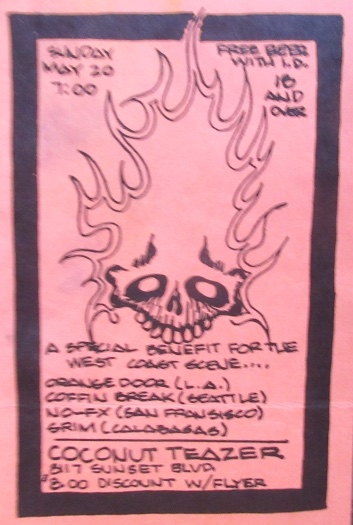 SUNDAY
MAY 20
7:00
FREE BEER
WITH I.D.
18
AND
OVER
A SPECIAL BENEFIT FOR THE
WEST COAST SCENE....
ORANGE DOOR (L.A.)
COFFIN BREAK (SEATTLE)
NO-FX (SAN FRANSISCO)
GRIM (CALABASAS)
COCONUT TEAZER
8117 SUNSET BLVD
$8.00 DISCOUNT W/FLYER